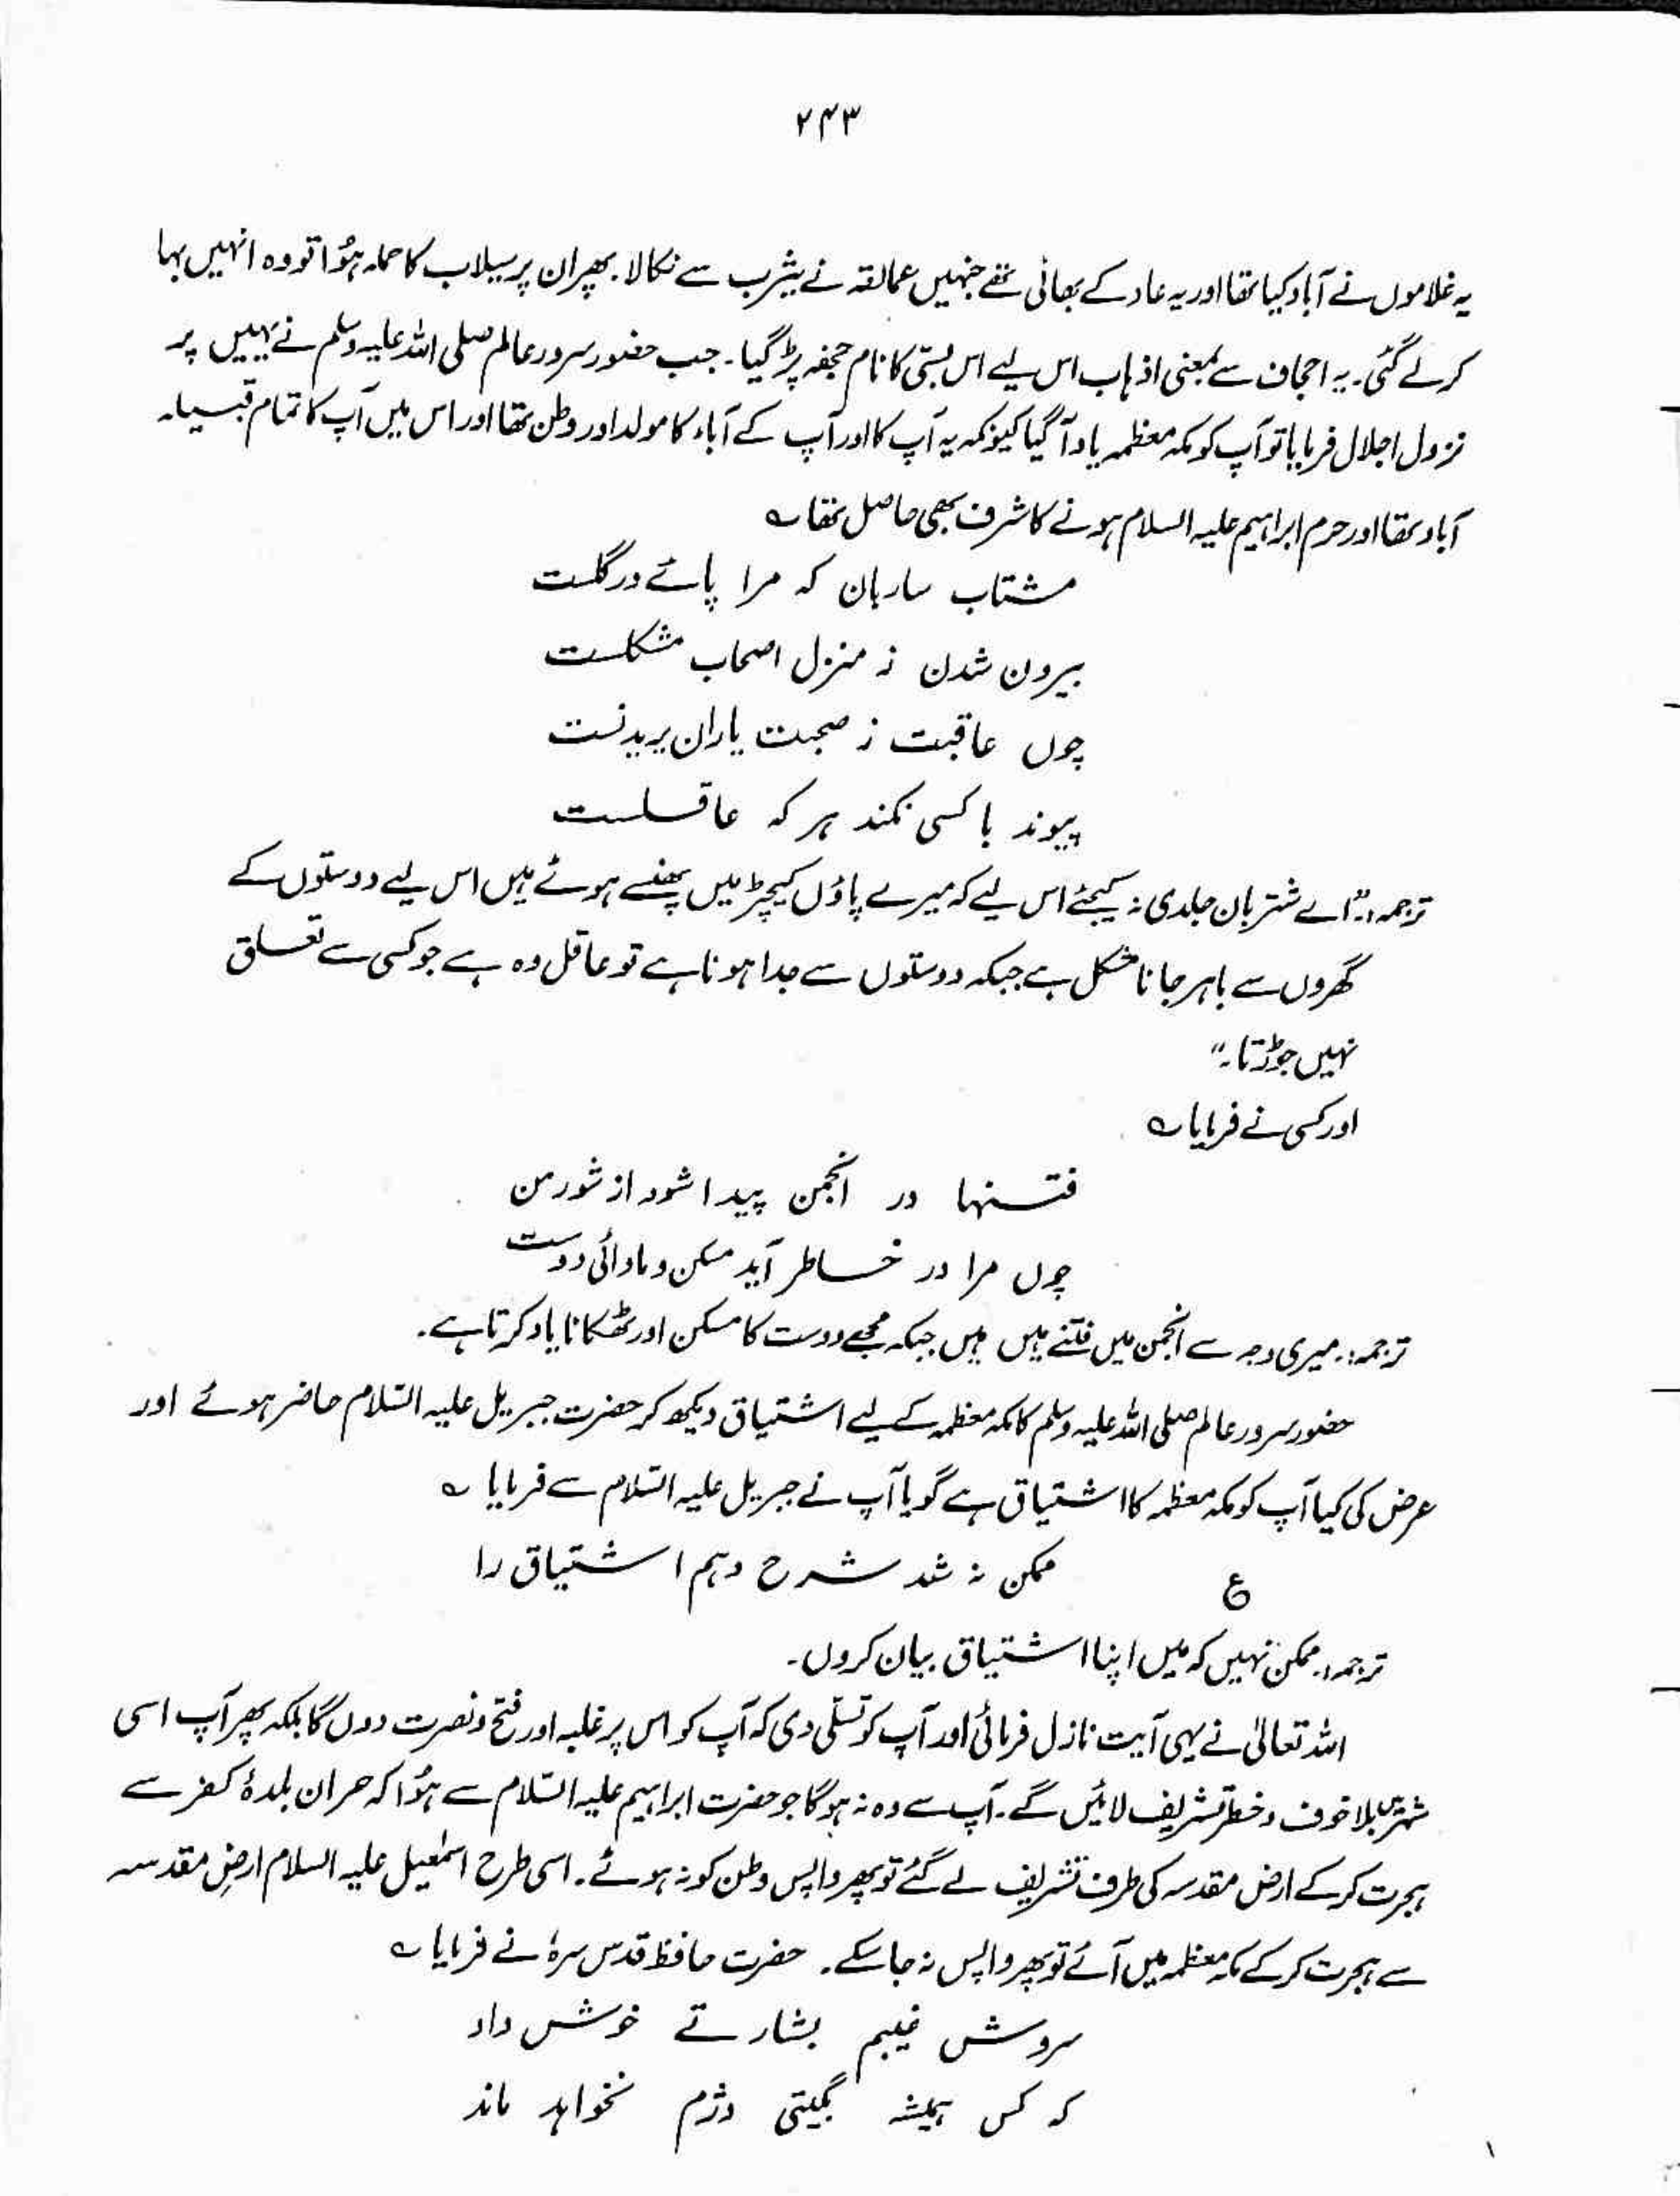 ۲۴۳
یہ غلاموں نے آباد کیا تھا اور یہ عاد کے بھائی تھے جنہیں عمالقہ نے یثرب سے نکالا۔ پھر ان پر سیلاب کا حملہ ہُوا تو وہ انہیں بہا
کر لے گئی۔ یہ احجاف سے بمعنی اذہاب اس لیے اس بستی کا نام حجفہ پڑ گیا۔ جب حضور سرور عالم صلی اللہ علیہ وسلم نے یہیں پر
نزول اجلال فرمایا تو آپ کو مکہ معظمہ یاد آگیا کیونکہ یہ آپ کا اور آپ کے آباء کا مولد اور وطن تھا اور اس میں آپ کا تمام قبیلہ
آباد تھا اور حرم ابراہیم علیہ السلام ہونے کا شرف بھی حاصل تھا ؎
مشتاب ساربان کہ مرا پائے در گلست
بیرون شدن ز منزل اصحاب مشکلست
چوں عاقبت ز صحبت یاران بریدنست
پیوند با کسی نکند ہر کہ عاقلست
ترجمہ:۔ "اے شتربان جلدی نہ کیجئے اس لیے کہ میرے پاؤں کیچڑ میں پھنسے ہوئے ہیں اس لیے دوستوں کے
گھروں سے باہر جانا مشکل ہے جبکہ دوستوں سے جدا ہونا ہے تو عاقل وہ ہے جو کسی سے تعلق
نہیں جوڑتا۔"
اور کسی نے فرمایا ؎
فتنہا در انجمن پیدا شود از شور من
چوں مرا در خاطر آید مسکن و مادائی دوست
ترجمہ:۔ میری وجہ سے انجمن میں فتنے ہیں ہیں جبکہ مجھے دوست کا مسکن اور ٹھکانا یاد کرتا ہے۔
حضور سرور عالم صلی اللہ علیہ وسلم کا مکہ معظمہ کے لیے اشتیاق دیکھ کر حضرت جبریل علیہ السّلام حاضر ہوئے اور
عرض کی کیا آپ کو مکہ معظمہ کا اشتیاق ہے گویا آپ نے جبریل علیہ السّلام سے فرمایا ؎
ع ممکن نہ شد شرح دہم اشتیاق را
ترجمہ:۔ ممکن نہیں کہ میں اپنا اشتیاق بیان کروں۔
اللہ تعالیٰ نے یہی آیت نازل فرمائی اور آپ کو تسلّی دی کہ آپ کو اس پر غلبہ اور فتح و نصرت دوں گا بلکہ پھر آپ اسی
شہر میں بلا خوف و خطر تشریف لائیں گے۔ آپ سے وہ نہ ہوگا جو حضرت ابراہیم علیہ السّلام سے ہُوا کہ حران بلدۂ کفر سے
ہجرت کر کے ارض مقدسہ کی طرف تشریف لے گئے تو پھر واپس وطن کو نہ ہوئے۔ اسی طرح اسمٰعیل علیہ السلام ارضِ مقدسہ
سے ہجرت کر کے مکہ معظمہ میں آئے تو پھر واپس نہ جا سکے۔ حضرت حافظ قدس سرہٗ نے فرمایا ؎
سروش غیبم بشارتے خوش داد
کہ کس ہمیشہ بگیتی دژم نخواہد ماند